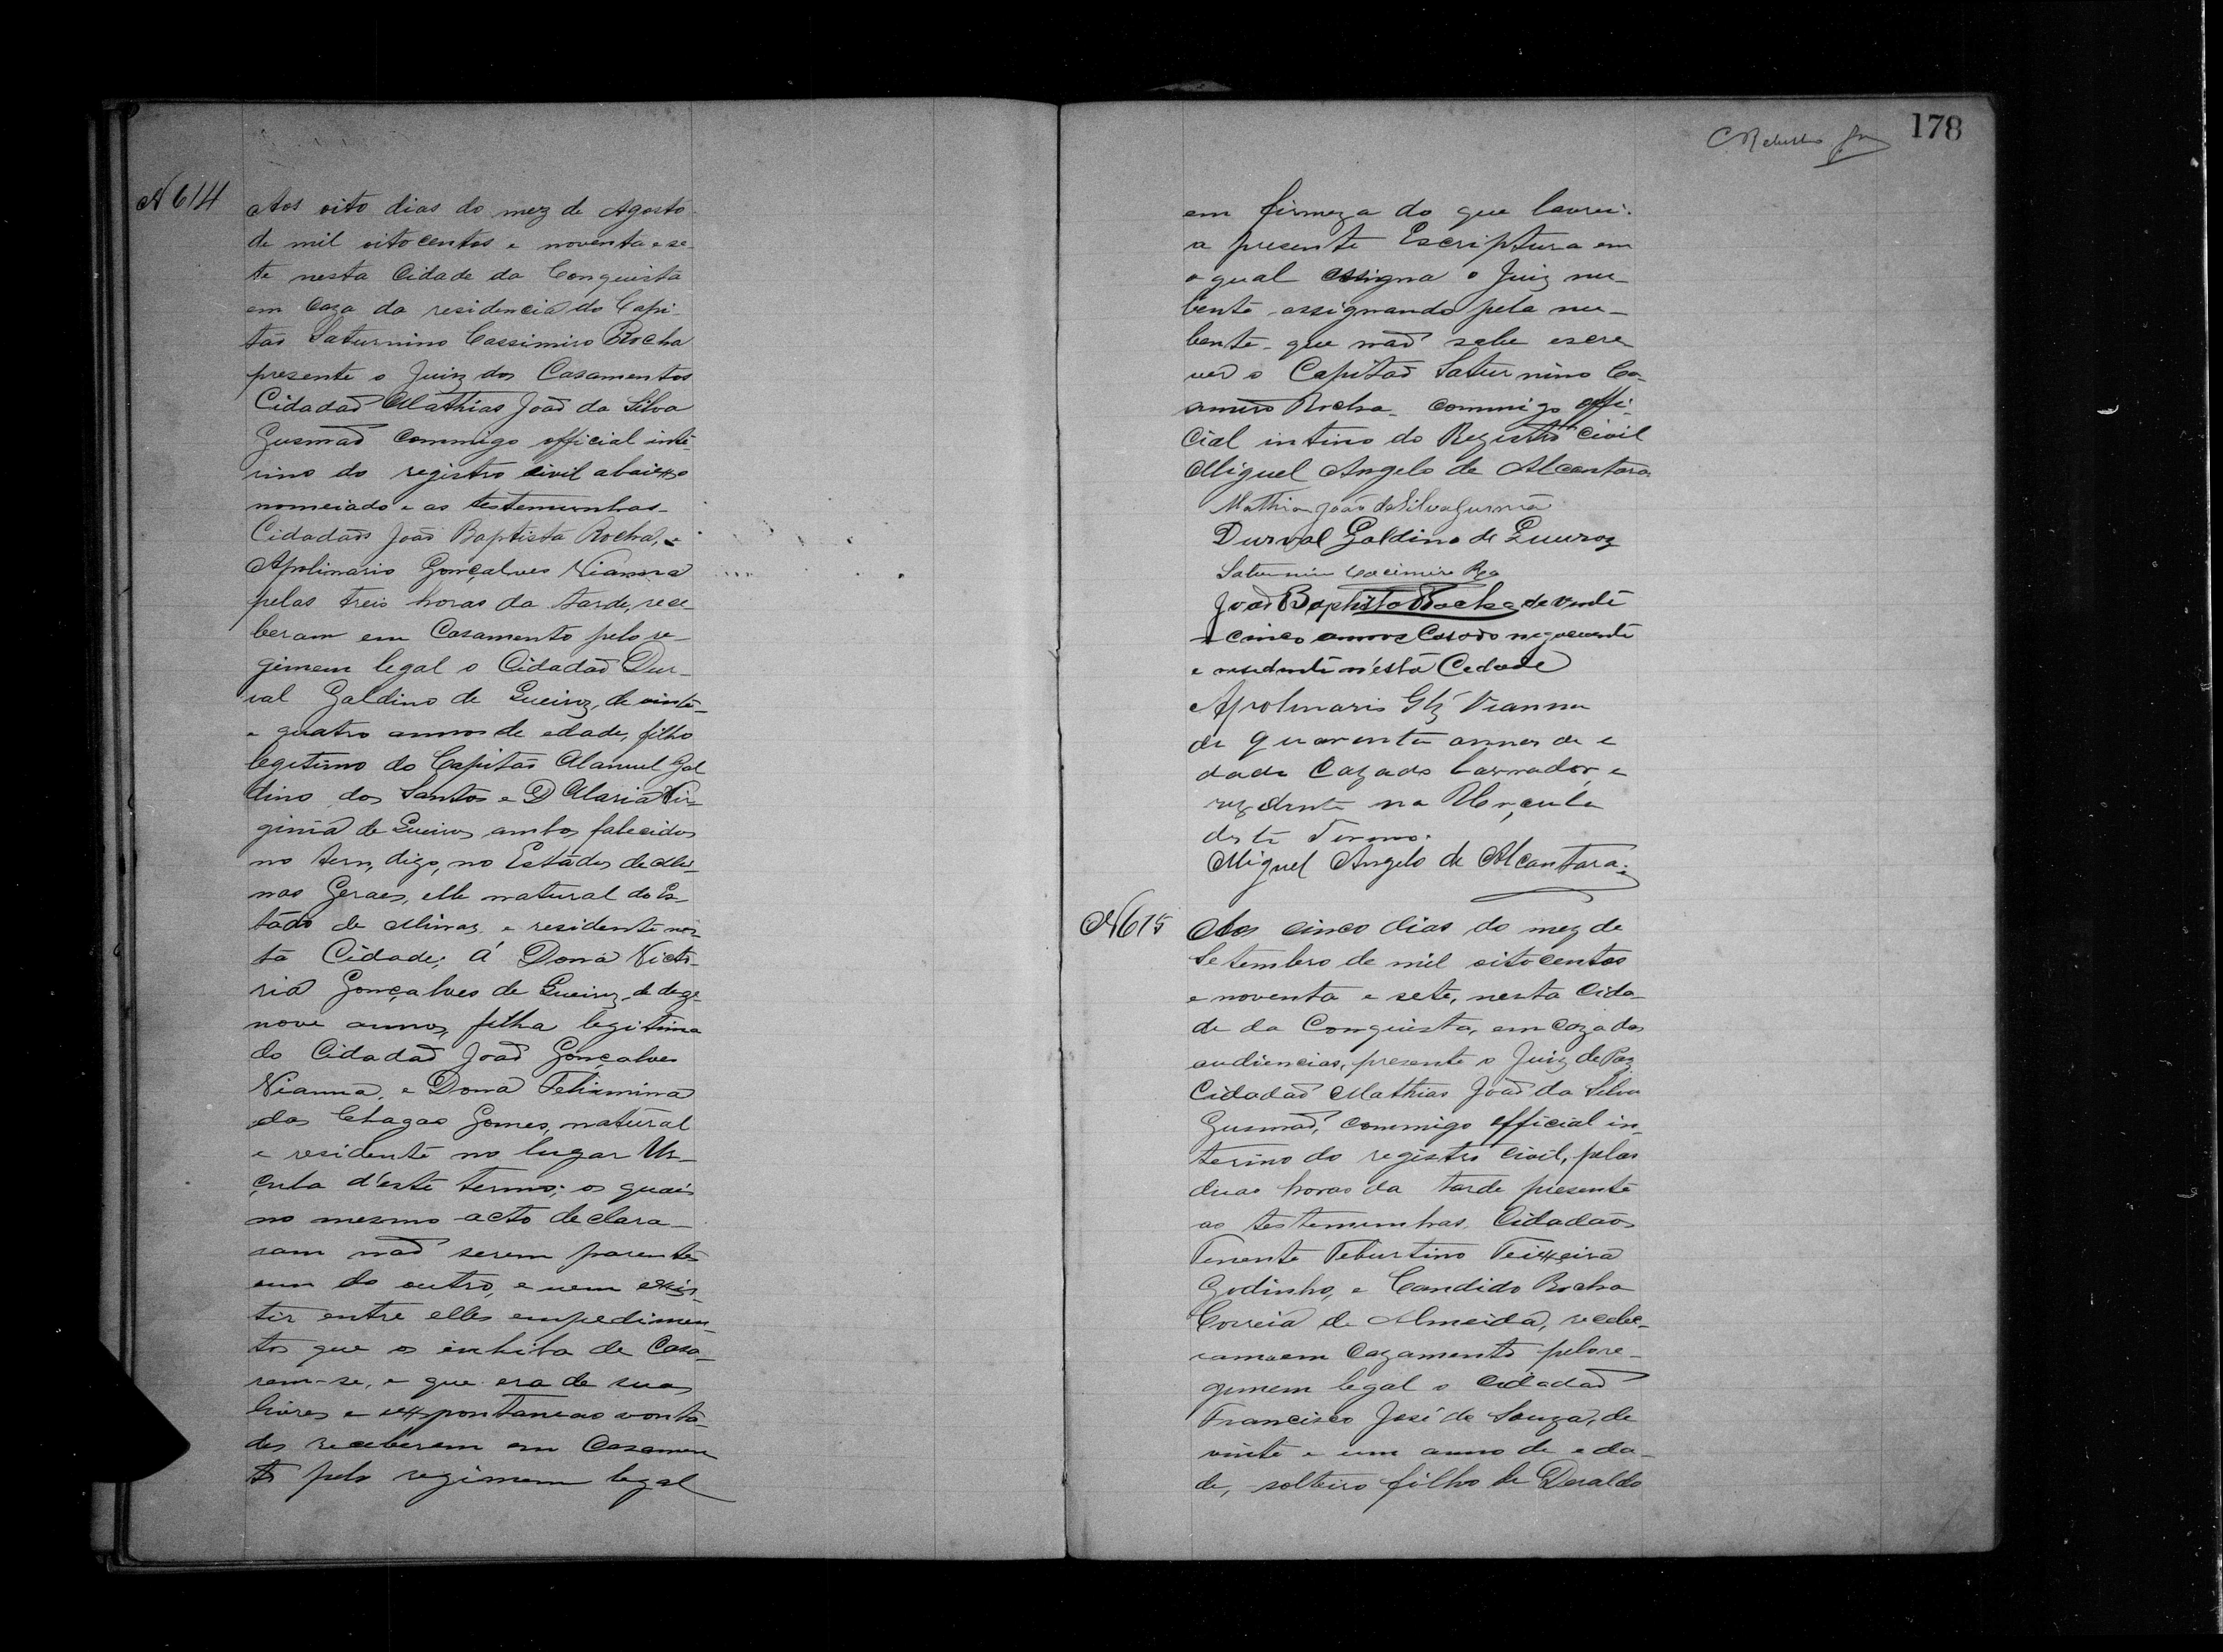 N 614
Aos oito dias do mez de Agosto
de mil oitocentos e noventa e se-
te nesta Cidade da Conquista
em Caza da residencia do Capi-
tão Saturnino Cassimiro Rocha
presente o Juiz dos Casamentos
Cidadaõ Mathias Joaõ da Silva
Gusmaõ commigo official inte-
rino do registro civil abaixo
nomeiado e as testemunhas
Cidadaõs Joaõ Baptista Rocha, e
Apolinario Gonçalves Vianna
pelas treis horas da tarde, rece-
beram em Casamento pelo re-
gimem legal o Cidadaõ Dur-
val Galdino de Queiroz, de vinte
e quatro annos de edade, filho
legitimo do Capitaõ Manuel Gal
dino dos Santos e D Maria Vir-
ginia de Queiroz ambos falecidos
no tern, digo, no Estado de Mi-
nas Geraes, elle natural do Es-
tado de Minas e residente nes-
ta Cidade; á Dona Victo-
ria Gonçalves de Queiroz, de deze-
nove annos, filha legitima
do Cidadaõ Joaõ Gonçalves
Vianna, e Dona Felismina
das Chagas Gomes, natural
e residente no lugar Ur-
çula d'este termo; os quais
no mesmo acto declara-
ram naõ serem parente
um do outro, e nem exis-
tir entre elles empedimen-
tos que os inhiba de Casa-
rem-se, e que era de suas
livres e expontaneas vonta-
des receberem em Casamen
to pelo regimem legal
178
em firmeza do que lavrei
a presente Escriptura em
o qual assigna o Juiz nu-
bente assignando pela nu-
bente que naõ sabe escre
ver o Capitaõ Saturnino Ca-
simiro Rocha commigo offi-
cial intino do Registro Civil
Miguel Angelo de Alcantara
Mathias João da Silva Gusmão
Durval Galdino de Queiroz
Saturnino Cacimiro Ra
Joaõ Baptista Rocha de vinte
e cinco annos Casado negociante
e residente n'esta Cidade
Apolinario Glz Vianna
de quarenta annos de e
dade Cazado lavrador, e
rezidente na Urçula
deste Termo.
Miguel Angelo de Alcantara.
N 615
Aos cinco dias do mez de
Setembro de mil oitocentos
e noventa e sete, nesta Cida-
de da Conquista, em caza das
audiencias, presente o Juiz de Paz
Cidadaõ Mathias Joaõ da Silva
Gusmaõ, commigo official in-
terino do registro civil, pelas
duas horas da tarde presente
as testemunhas Cidadãos
Tenente Teburtino Teixeira
Godinho, e Candido Rocha
Correia de Almeida, recebe-
ram em Cazamento pelo re-
gimem legal o Cidadaõ
Francisco José de Souza, de
vinte e um anno de eda-
de, solteiro filho de Deraldo